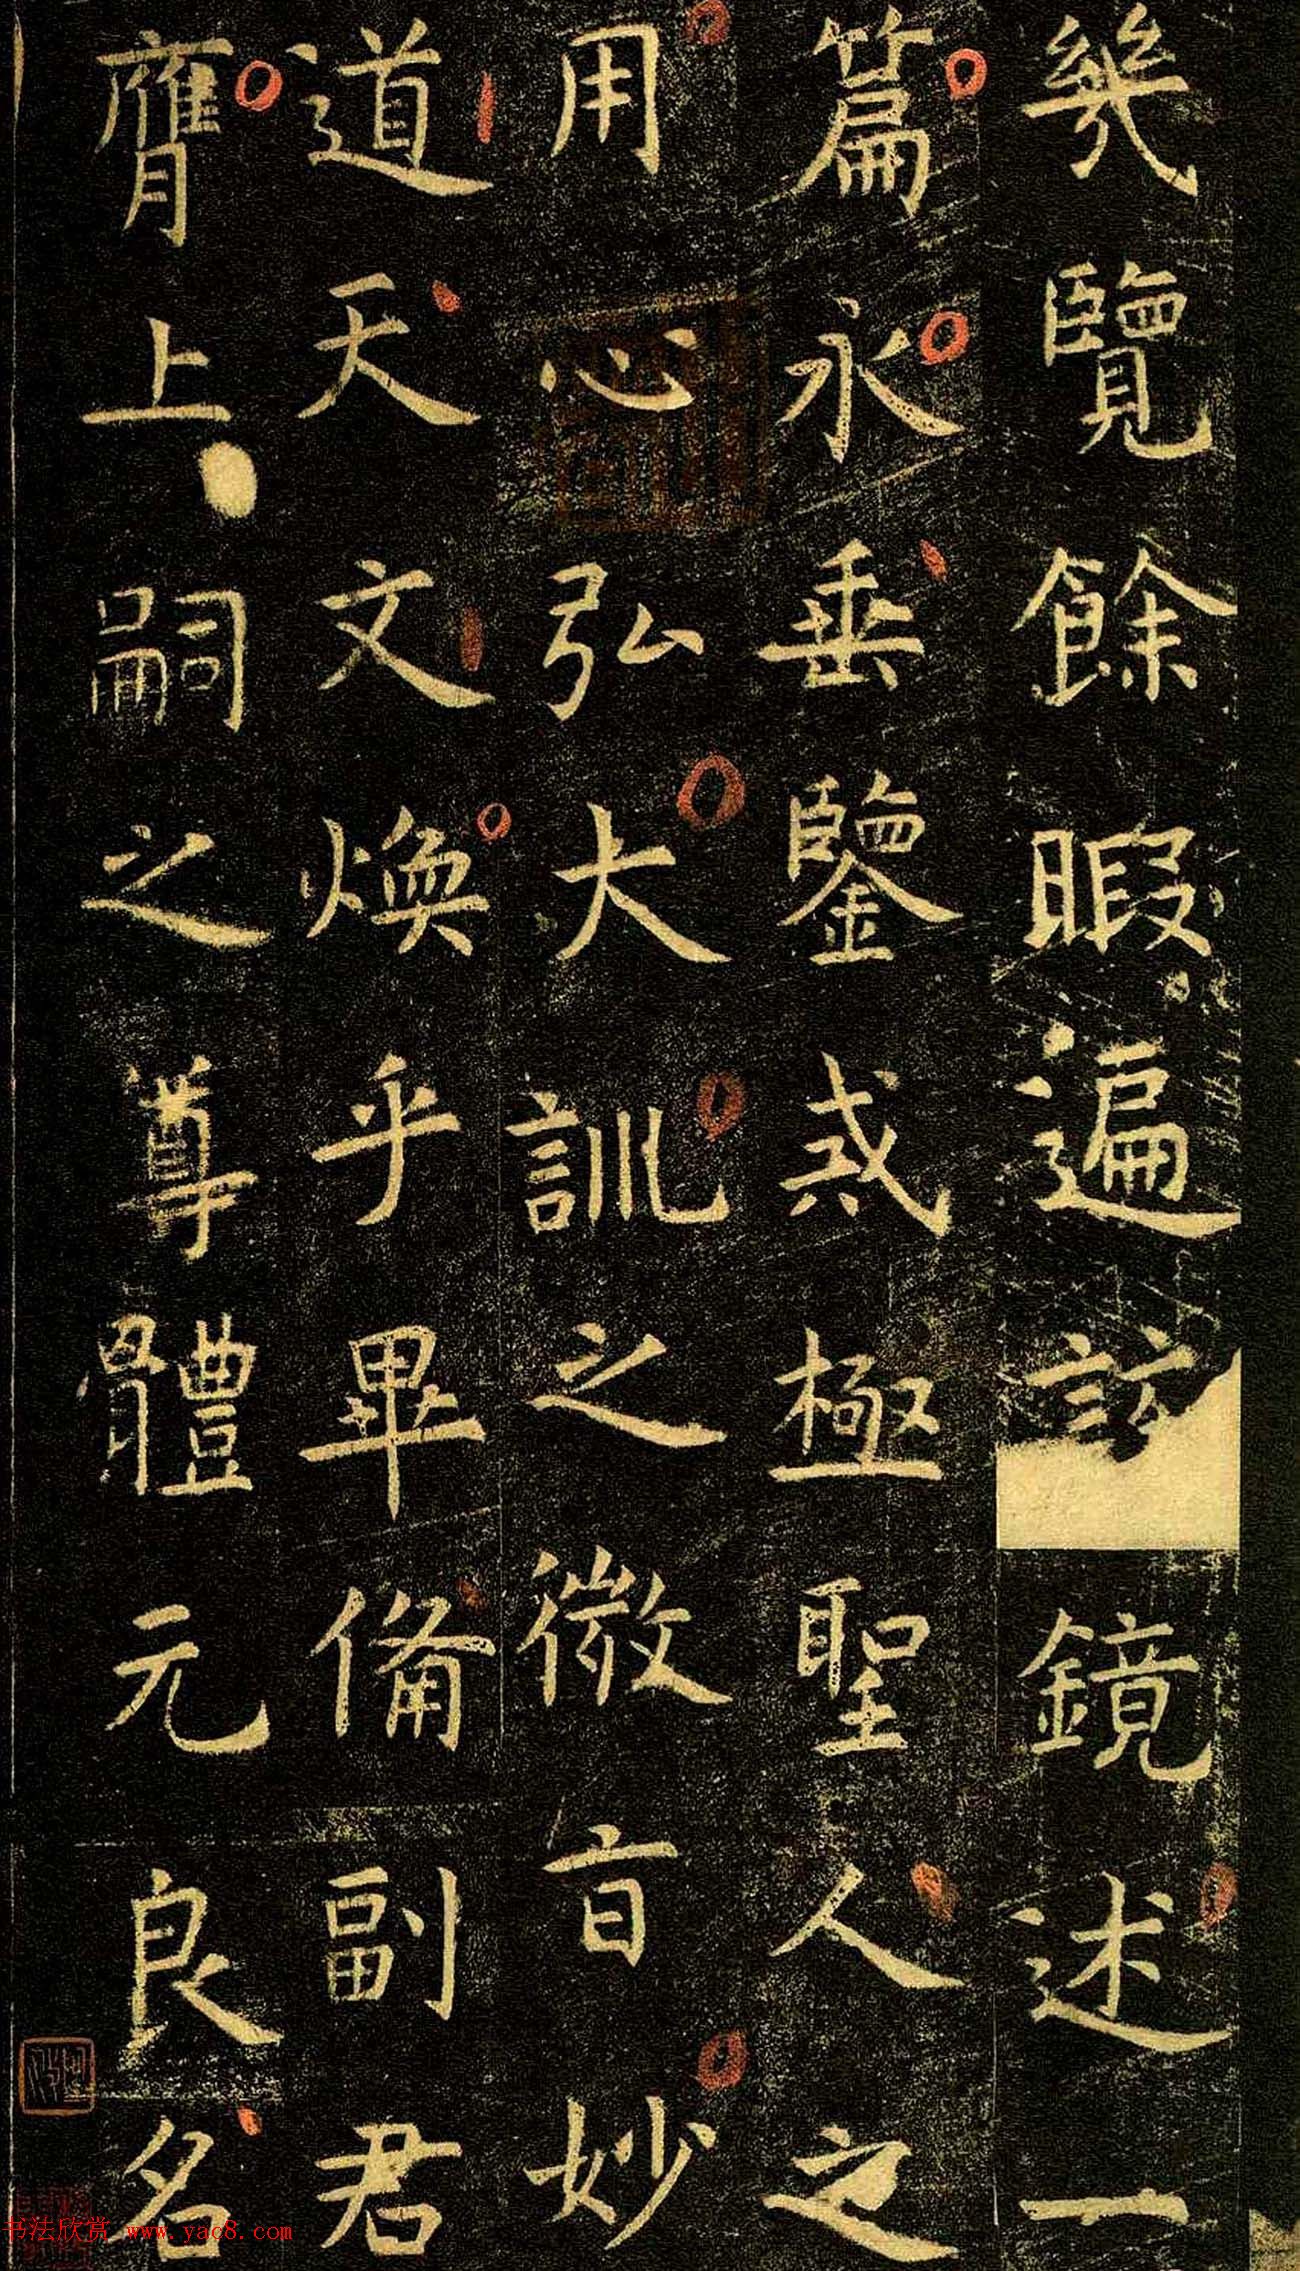 幾覽餘暇遍鏡述一
篇永垂鑒戒極聖人之
用心弘大訓之微旨妙
道天文煥乎畢備副君
膺上嗣之尊體元良名
书法欣赏 www.yac8.com